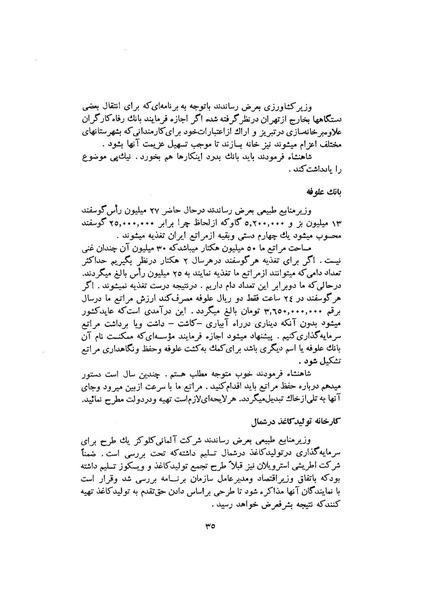 وزیر کشاورزی بعرض رساندند باتوجه به برنامه‌ای‌که برای انتقال بعضی
دستگاهها بخارج ازتهران درنظرگرفته شده اگر اجازه فرمایند بانك رفاه کارگران
علاوه‌برخانه‌سازی درتبریز و اراك ازاعتبارات‌خود برای کارمندانی که بشهرستانهای
مختلف اعزام میشوند نیز خانه بسازند تا موجب تسهیل عزیمت آنها بشود .
شاهنشاه فرمودند باید بانك بدرد اینکارها هم بخورد . نیك‌پی موضوع
را یادداشت‌کند .
بانك علوفه
وزیرمنابع طبیعی بعرض رساندند درحال حاضر ۲۷ میلیون رأس‌گوسفند
۱۳ میلیون بز و ۵,۲۰۰,۰۰۰ گاوکه ازلحاظ چرا برابر ۲۵,۰۰۰,۰۰۰ گوسفند
محسوب میشود یك چهارم دستی وبقیه ازمراتع ایران تغذیه میشوند .
مساحت مراتع ما ۵۰ میلیون هکتار میباشدکه ۳۰ میلیون آن چندان غنی
نیست . اگر برای تغذیه هرگوسفند درهرسال ۲ هکتار درنظر بگیریم حداکثر
تعداد دامی‌که میتوانند ازمراتع ما تغذیه نمایند به ۲۵ میلیون رأس بالغ میگردند.
درحالی‌که ما دوبرابر این تعداد دام داریم . درنتیجه درست تغذیه نمیشوند . اگر
هرگوسفند در ۲۴ ساعت فقط دو ریال علوفه مصرف‌کند ارزش مراتع ما درسال
برقم ۳,۶۵۰,۰۰۰,۰۰۰ تومان بالغ میگردد . این درآمدی است‌که عایدکشور
میشود بدون آنکه دیناری درراه آبیاری – کاشت – داشت ویا برداشت مراتع
سرمایه‌گذاری‌کنیم . پیشنهاد میشود اجازه فرمایند مؤسسه‌ای‌که ممکنست نام آن
بانك علوفه یا اسم دیگری باشد برای‌کمك به‌کشت علوفه وحفظ ونگاهداری مراتع
تشکیل شود .
شاهنشاه فرمودند خوب متوجه مطلب هستم . چندین سال است دستور
میدهم درباره حفظ مراتع باید اقدام‌کنید . مراتع ما با سرعت ازبین میرود وجای
آنها به تلی‌ازخاك تبدیل‌میگردد. هرلایحه‌ای‌لازم‌است تهیه ودردولت مطرح نمائید.
کارخانه تولیدکاغذ درشمال
وزیرمنابع طبیعی بعرض رساندند شرکت آلمانی‌کلوکنر یك طرح برای
سرمایه‌گذاری درتولیدکاغذ درشمال تسلیم داشته‌که تحت بررسی است . ضمناً
شرکت اطریشی استرویلان نیز قبلاً طرح تجمع تولیدکاغذ و ویسکوز تسلیم داشته
بودکه باتفاق وزیراقتصاد ومدیرعامل سازمان برنامه بررسی شد وقرار است
با نمایندگان آنها مذاکره شود تا طرحی براساس دادن حق‌تقدم به تولیدکاغذ تهیه
کنندکه نتیجه بشرفعرض خواهد رسید .
۳۵